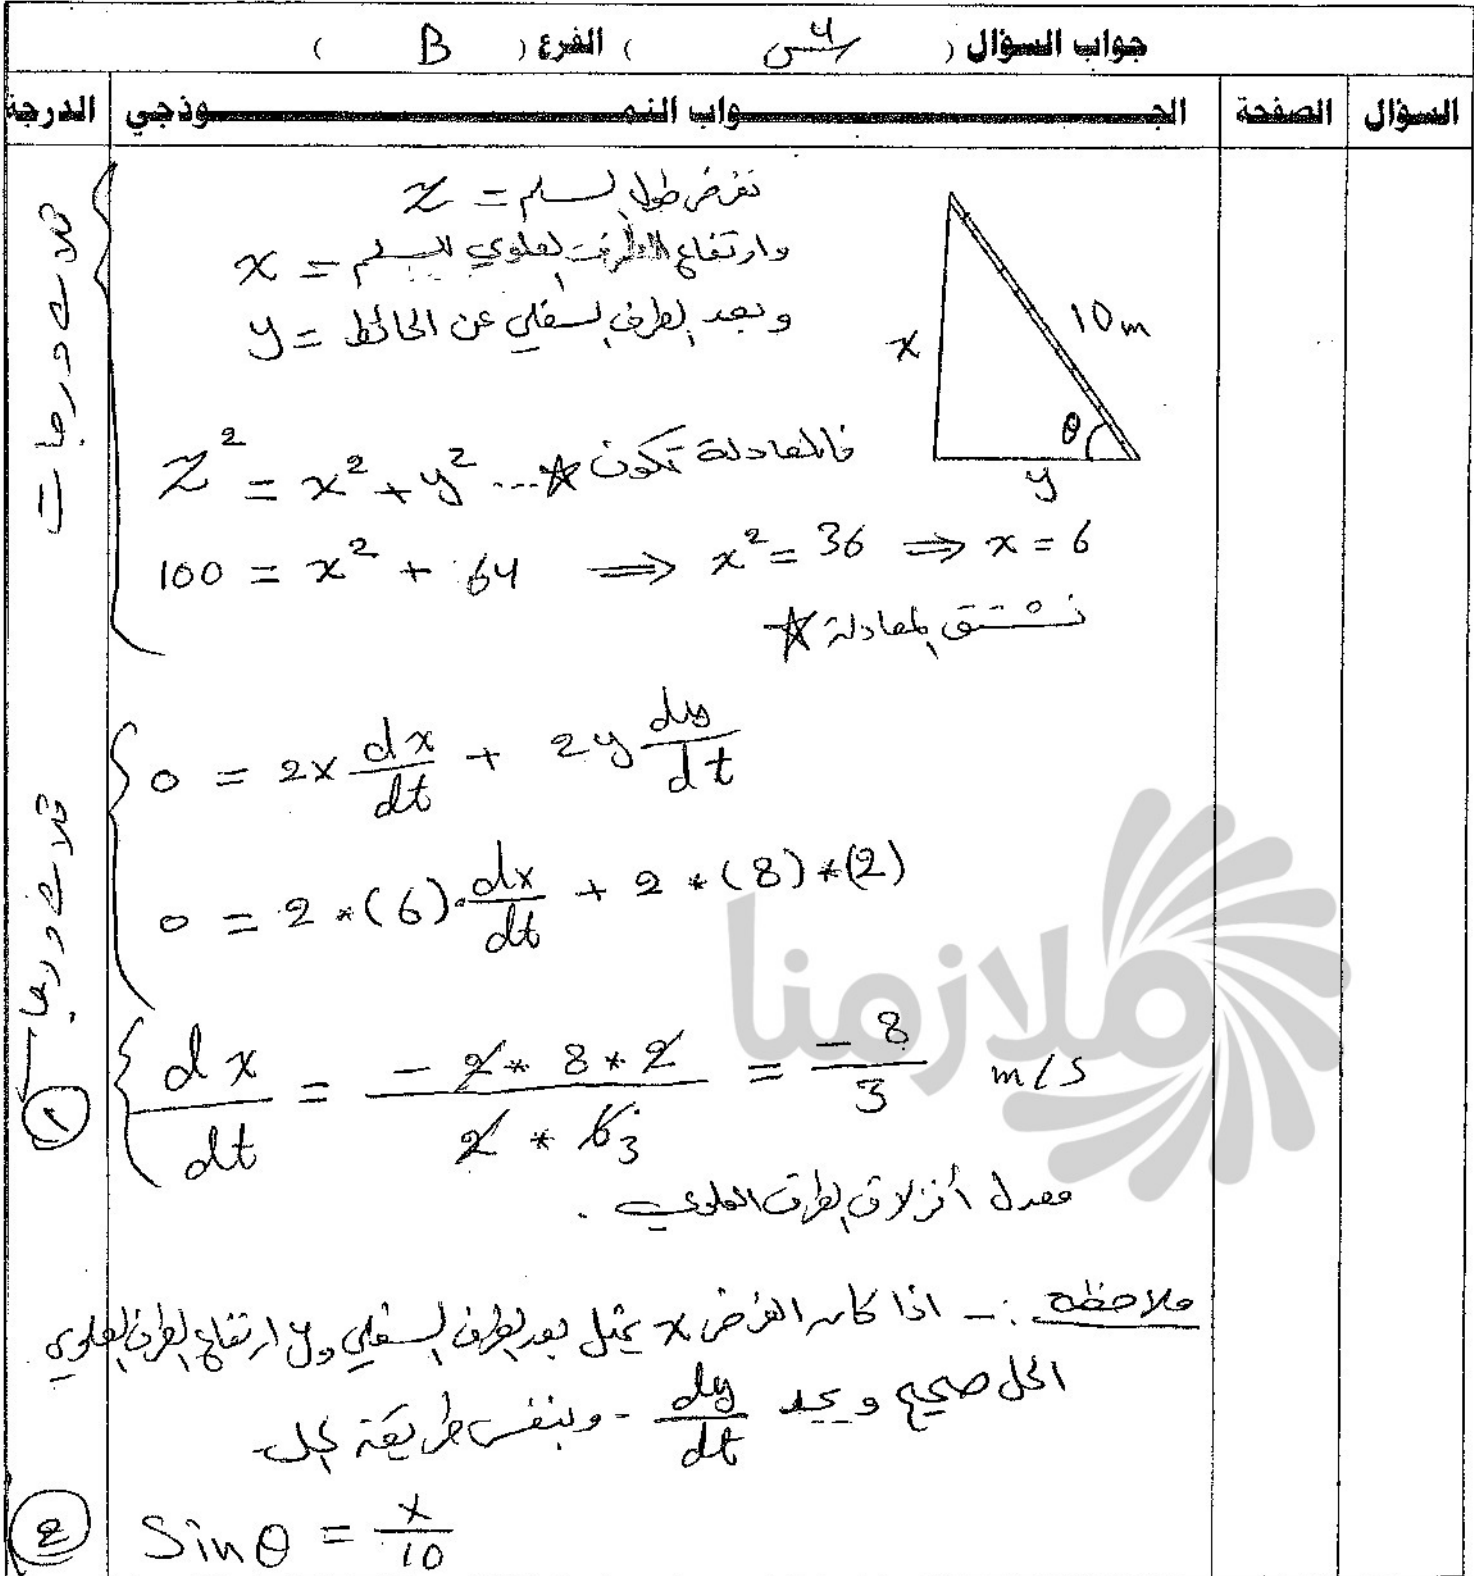 جواب السؤال ( س4 ) الفرع ( B )
السؤال الصفحة الجـواب النمـوذجي الدرجة
نفرض طول السلم = z
وارتفاع الطرف العلوي للسلم = x
وبعد الطرف السفلي عن الحائط = y
x 10m θ y
فالمعادلة تكون ★... z² = x² + y²
100 = x² + 64 ⟹ x² = 36 ⟹ x = 6
نشتق المعادلة ★
ثلاث درجات
0 = 2x dx/dt + 2y dy/dt
0 = 2*(6)·dx/dt + 2*(8)*(2)
ثلاث درجات
dx/dt = -2*8*2 / 2*6 3 = -8/3 m/s
معدل أنزلاق الطرف العلوي .
ملاحظه :- اذا كان الفرض x يمثل بعد الطرف السفلي و y ارتفاع الطرف العلوي
الحل صحيح ويجد dy/dt - وبنفس طريقة الحل-
Sin θ = x/10
ملازمنا